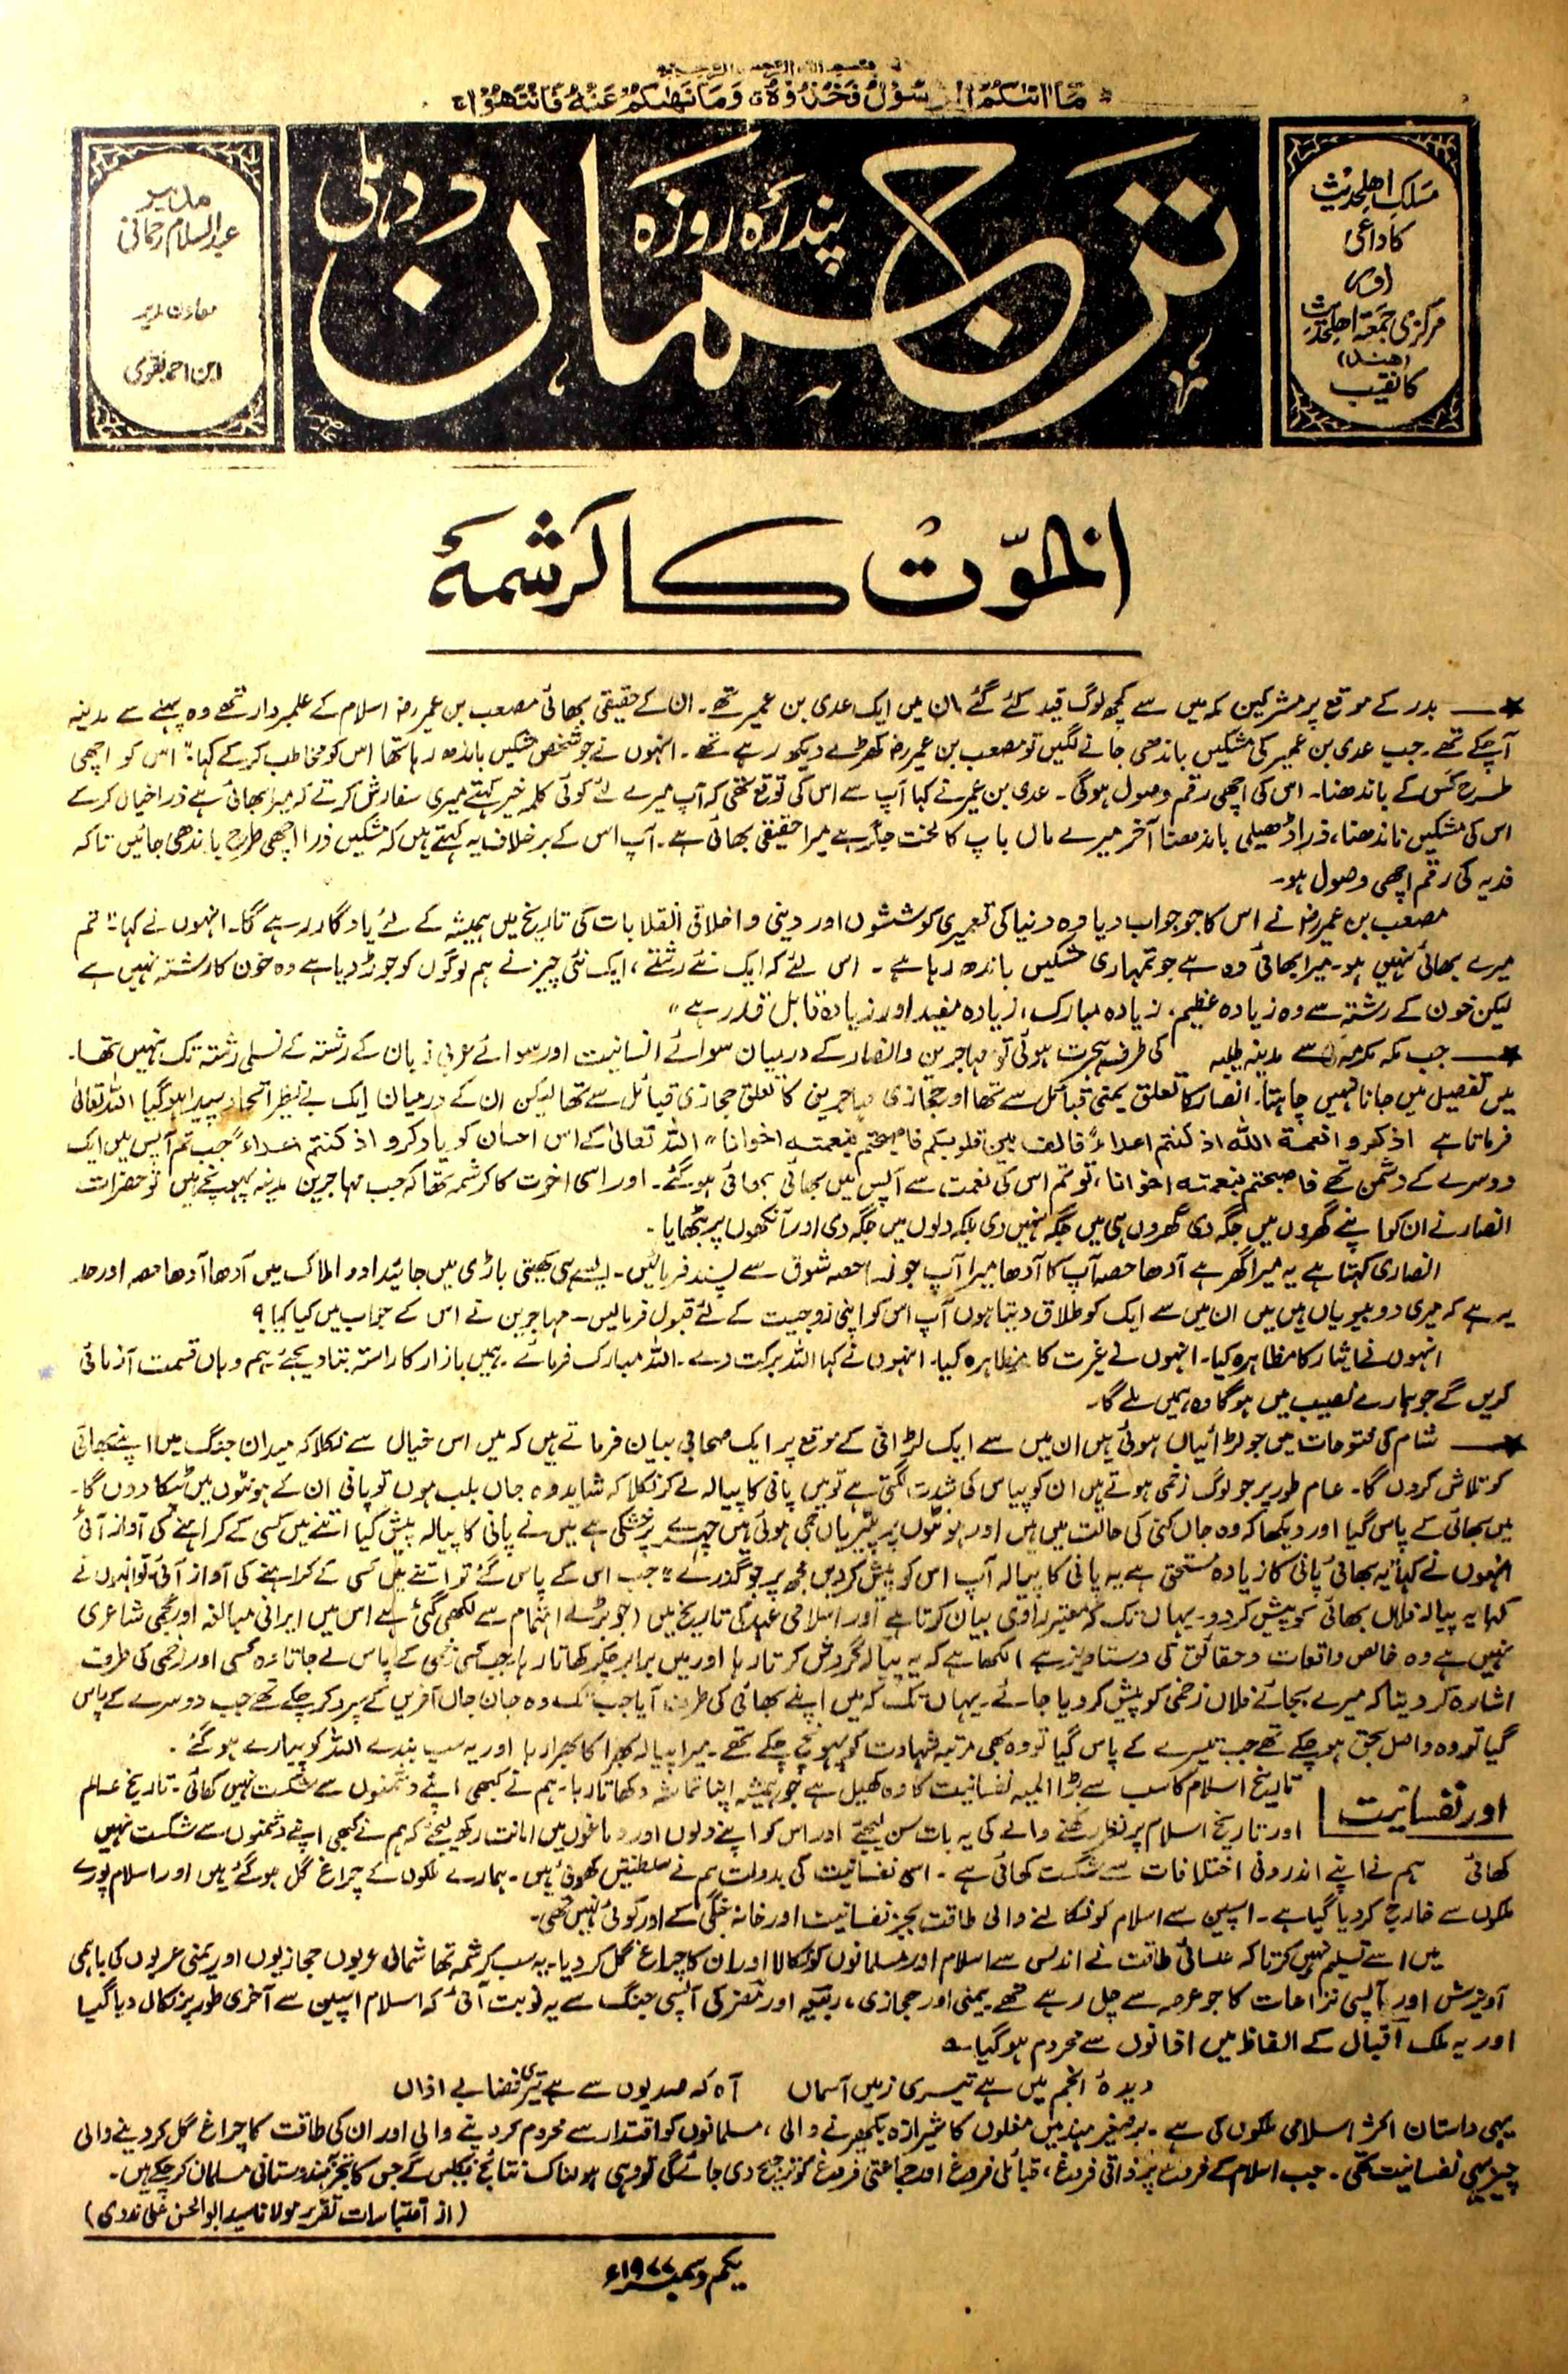 بسم اللہ الرحمن الرحیم
مَا اٰتٰىكُمُ الرَّسُوْلُ فَخُذُوْهُ وَمَا نَهٰىكُمْ عَنْهُ فَانْتَهُوْا
مسلک اہلحدیث
کا داعی
اور
مرکزی جمعیۃ اہلحدیث
(ہند)
کا نقیب
ترجمان
پندرہ روزہ
دہلی
مدیر
عبدالسلام رحمانی
معاون مدیر
ابن احمد نقوی
اخوّت کا کرشمہ
بدر کے موقع پر مشرکین مکہ میں سے کچھ لوگ قید کئے گئے ان میں ایک عدی بن عمیر تھے۔ ان کے حقیقی بھائی مصعب بن عمیر رضہ اسلام کے علمبردار تھے وہ پہلے سے مدینہ
آچکے تھے۔ جب عدی بن عمیر کی مشکیں باندھی جانے لگیں تو مصعب بن عمیر رضہ کھڑے دیکھ رہے تھے۔ انہوں نے جو شخص مشکیں باندھ رہا تھا اس کو مخاطب کرکے کہا: "اس کو اچھی
طرح کس کے باندھنا۔ اس کی اچھی رقم وصول ہوگی۔ عدی بن عمیر نے کہا آپ سے اس کی توقع تھی کہ آپ میرے لئے کوئی کلمہ خیر کہتے میری سفارش کرتے کہ میرا بھائی ہے ذرا خیال کرکے
اس کی مشکیں باندھنا، ذرا ڈھیلی باندھنا آخر میرے ماں باپ کا لخت جگر ہے میرا حقیقی بھائی ہے۔ آپ اس کے برخلاف یہ کہتے ہیں کہ مشکیں ذرا اچھی طرح باندھی جائیں تاکہ
فدیہ کی رقم اچھی وصول ہو۔
مصعب بن عمیر رضہ نے اس کا جو جواب دیا وہ دنیا کی تعمیری کوششوں اور دینی و اخلاقی انقلابات کی تاریخ میں ہمیشہ کے لئے یادگار رہے گا۔ انہوں نے کہا: "تم
میرے بھائی نہیں ہو۔ میرا بھائی وہ ہے جو تمہاری مشکیں باندھ رہا ہے۔ اس لئے کہ ایک نئے رشتے، ایک نئی چیز نے ہم لوگوں کو جوڑ دیا ہے وہ خون کا رشتہ نہیں ہے
لیکن خون کے رشتہ سے وہ زیادہ عظیم، زیادہ مبارک، زیادہ مفید اور زیادہ قابل قدر ہے"
جب مکہ مکرمہ سے مدینہ طیبہ کی طرف ہجرت ہوئی تو مہاجرین و انصار کے درمیان سوائے انسانیت اور سوائے عربی زبان کے رشتہ کے نسلی رشتہ تک نہیں تھا۔
میں تفصیل میں جانا نہیں چاہتا۔ انصار کا تعلق یمنی قبائل سے تھا اور حجازی مہاجرین کا تعلق حجازی قبائل سے تھا لیکن ان کے درمیان ایک بے نظیر اتحاد پیدا ہوگیا اللہ تعالیٰ
فرماتا ہے اذکروا نعمة الله اذ کنتم اعداءً فالف بین قلوبکم فاصبحتم بنعمته اخوانا" اللہ تعالیٰ کے اس احسان کو یاد کرو اذ کنتم اعداءً جب تم آپس میں ایک
دوسرے کے دشمن تھے فاصبحتم بنعمته اخوانا، تو تم اس کی نعمت سے آپس میں بھائی بھائی ہوگئے۔ اور اسی اخوت کا کرشمہ تھا کہ جب مہاجرین مدینہ پہونچے ہیں تو حضرات
انصار نے ان کو اپنے گھروں میں جگہ دی گھروں ہی میں جگہ نہیں دی بلکہ دلوں میں جگہ دی اور آنکھوں پر بٹھایا۔
انصاری کہتا ہے یہ میرا گھر ہے آدھا حصہ آپ کا آدھا میرا آپ جونسا حصہ شوق سے پسند فرمائیں۔ ایسے ہی کھیتی باڑی میں جائیداد اور املاک میں آدھا آدھا حصہ اور حد
یہ ہے کہ میری دو بیویاں ہیں میں ان میں سے ایک کو طلاق دیتا ہوں آپ اس کو اپنی زوجیت کے لئے قبول فرمالیں۔ مہاجرین نے اس کے جواب میں کیا کیا؟
انہوں نے ایثار کا مظاہرہ کیا۔ انہوں نے غیرت کا مظاہرہ کیا۔ انہوں نے کہا اللہ برکت دے۔ اللہ مبارک فرمائے۔ ہمیں بازار کا راستہ بتا دیجئے ہم وہاں قسمت آزمائی
کریں گے جو ہمارے نصیب میں ہوگا وہ ہمیں ملے گا۔
شام کی فتوحات میں جو لڑائیاں ہوئی ہیں ان میں سے ایک لڑائی کے موقع پر ایک صحابی بیان فرماتے ہیں کہ میں اس خیال سے نکلا کہ میدان جنگ میں اپنے بھائی
کو تلاش کروں گا۔ عام طور پر جو لوگ زخمی ہوتے ہیں ان کو پیاس کی شدت لگتی ہے تو میں پانی کا پیالہ لے کر نکلا کہ شاید وہ جاں بلب ہوں تو پانی ان کے ہونٹوں میں ٹپکا دوں گا۔
میں بھائی کے پاس گیا اور دیکھا کہ وہ جاں کنی کی حالت میں ہیں اور ہونٹوں پر پپڑیاں جمی ہوئی ہیں چہرے پر خشکی ہے میں نے پانی کا پیالہ پیش کیا اتنے میں کسی کے کراہنے کی آواز آئی
انہوں نے کہا "یہ بھائی پانی کا زیادہ مستحق ہے یہ پانی کا پیالہ آپ اس کو پیش کردیں مجھ پر جو گذرے" جب اس کے پاس گئے تو اتنے میں کسی کے کراہنے کی آواز آئی تو انہوں نے
کہا یہ پیالہ فلاں بھائی کو پیش کردو۔ یہاں تک کہ معتبر راوی بیان کرتا ہے اور اسلامی عہد کی تاریخ میں (جو بڑے اہتمام سے لکھی گئی ہے اس میں ایرانی مبالغہ اور عجمی شاعری
نہیں ہے وہ خالص واقعات و حقائق کی دستاویز ہے) لکھا ہے کہ یہ پیالہ گردش کرتا رہا اور میں برابر چکر کھاتا رہا جب کسی زخمی کے پاس لے جاتا وہ کسی اور زخمی کی طرف
اشارہ کر دیتا کہ میرے بجائے فلاں زخمی کو پیش کردیا جائے۔ یہاں تک کہ میں اپنے بھائی کی طرف آیا جب تک وہ جان جاں آفریں کے سپرد کرچکے تھے جب دوسرے کے پاس
گیا تو وہ واصل بحق ہوچکے تھے جب تیسرے کے پاس گیا تو وہ بھی مرتبہ شہادت کو پہونچ چکے تھے۔ میرا پیالہ بھرا کا بھرا رہا اور یہ سب بندے اللہ کو پیارے ہوگئے۔
اور نفسانیت
تاریخ اسلام کا سب سے بڑا المیہ نفسانیت کا وہ کھیل ہے جو ہمیشہ اپنا تماشہ دکھاتا رہا۔ ہم نے کبھی اپنے دشمنوں سے شکست نہیں کھائی۔ تاریخ عالم
اور تاریخ اسلام پر نظر رکھنے والے کی یہ بات سن لیجئے اور اس کو اپنے دلوں اور دماغوں میں امانت رکھ لیجئے کہ ہم نے کبھی اپنے دشمنوں سے شکست نہیں
کھائی ہم نے اپنے اندرونی اختلافات سے شکست کھائی ہے۔ اسی نفسانیت کی بدولت ہم نے سلطنتیں کھوئی ہیں۔ ہمارے ملکوں کے چراغ گل ہوگئے ہیں اور اسلام پورے
ملکوں سے خارج کردیا گیا ہے۔ اسپین سے اسلام کو نکالنے والی طاقت بجز نفسانیت اور خانہ جنگی کے اور کوئی نہیں تھی۔
میں اسے تسلیم نہیں کرتا کہ عیسائی طاقت نے اندلس سے اسلام اور مسلمانوں کو نکالا اور ان کا چراغ گل کردیا۔ یہ سب کرشمہ تھا شمالی عربوں حجازیوں اور یمنی عربوں کی باہمی
آویزش اور آپسی نزاعات کا جو عرصہ سے چل رہے تھے۔ یمنی اور حجازی، ربیعہ اور مضر کی آپسی جنگ سے یہ نوبت آئی کہ اسلام اسپین سے آخری طور پر نکال دیا گیا
اور یہ ملک اقبال کے الفاظ میں اذانوں سے محروم ہوگیا۔
دیدۂ انجم میں ہے تیری زمیں آسماں آہ کہ صدیوں سے ہے تیری فضا بے اذاں
یہی داستان اکثر اسلامی ملکوں کی ہے۔ برصغیر ہند میں مغلوں کا شیرازہ بکھیرنے والی، مسلمانوں کو اقتدار سے محروم کردینے والی اور ان کی طاقت کا چراغ گل کردینے والی
چیز یہی نفسانیت تھی۔ جب اسلام کے فروغ پر ذاتی فروغ، قبائلی فروغ اور جماعتی فروغ کو ترجیح دی جائے گی تو وہی ہولناک نتائج نکلیں گے جس کا تجربہ ہندوستانی مسلمان کرچکے ہیں۔
(از اقتباسات تقریر مولانا سید ابوالحسن علی ندوی)
یکم دسمبر ۱۹۷۷ء